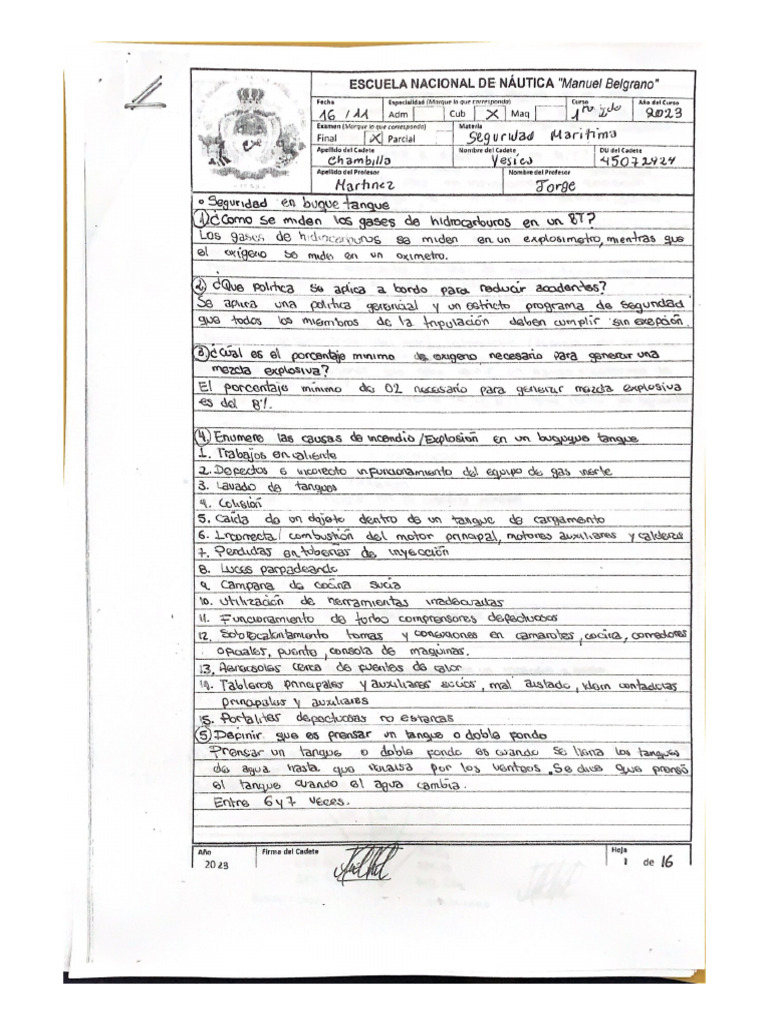 ESCUELA NACIONAL DE NÁUTICA "Manuel Belgrano"
Fecha Especialidad (Marque lo que corresponda) Curso Año del Curso
16 / 11 Adm Cub X Maq 1ro 2do 2023
Examen (Marque lo que corresponda) Materia
Final X Parcial Seguridad Maritima
Apellido del Cadete Nombre del Cadete DU del Cadete
Chambilla Yesica 45072424
Apellido del Profesor Nombre del Profesor
Martinez Jorge
• Seguridad en buque tanque
1) ¿Como se miden los gases de hidrocarburos en un BT?
Los gases de hidrocarburos se miden en un explosimetro, mientras que
el oxigeno se miden en un oximetro.
2) ¿Que politica se aplica a bordo para reducir accidentes?
Se aplica una politica gerencial y un estricto programa de seguridad
que todos los miembros de la tripulación deben cumplir sin exepción.
3) ¿Cúal es el porcentaje minimo de oxigeno necesario para generar una
mezcla explosiva?
El porcentaje mínimo de O2 necesario para generar mezcla explosiva
es del 8%.
4) Enumere las causas de incendio /Explosión en un buquque tanque
1. Trabajos en caliente
2. Defectos e incorrecto infuncionamiento del equipo de gas inerte
3. Lavado de tanques
4. Colisión
5. Caída de un objeto dentro de un tanque de cargamento
6. Incorrecta combustión del motor principal, motores auxiliares y calderas
7. Perdidas en tuberias de inyección
8. Luces parpadeando
9. Campana de cocina sucia
10. Utilización de herramientas inadecuadas
11. Funcionamiento de turbo comprensores defectuosos
12. Sobrecalentamiento tomas y conexiones en camarotes, cocina, comedores
oficiales, puente, consola de maquinas.
13. Aerosoles cerca de fuentes de calor
14. Tableros principales y auxiliares sucios, mal aislado, idem contadores
principales y auxiliares
15. Portalites defectuosas no estancas
5) Definir que es prensar un tanque o doble fondo
Prensar un tanque o doble fondo es cuando se llena los tanques
de agua hasta que rebalsa por los venteos. Se dice que prensó
el tanque cuando el agua cambia.
Entre 6 y 7 veces.
Año Firma del Cadete Hoja
2023 1 de 16